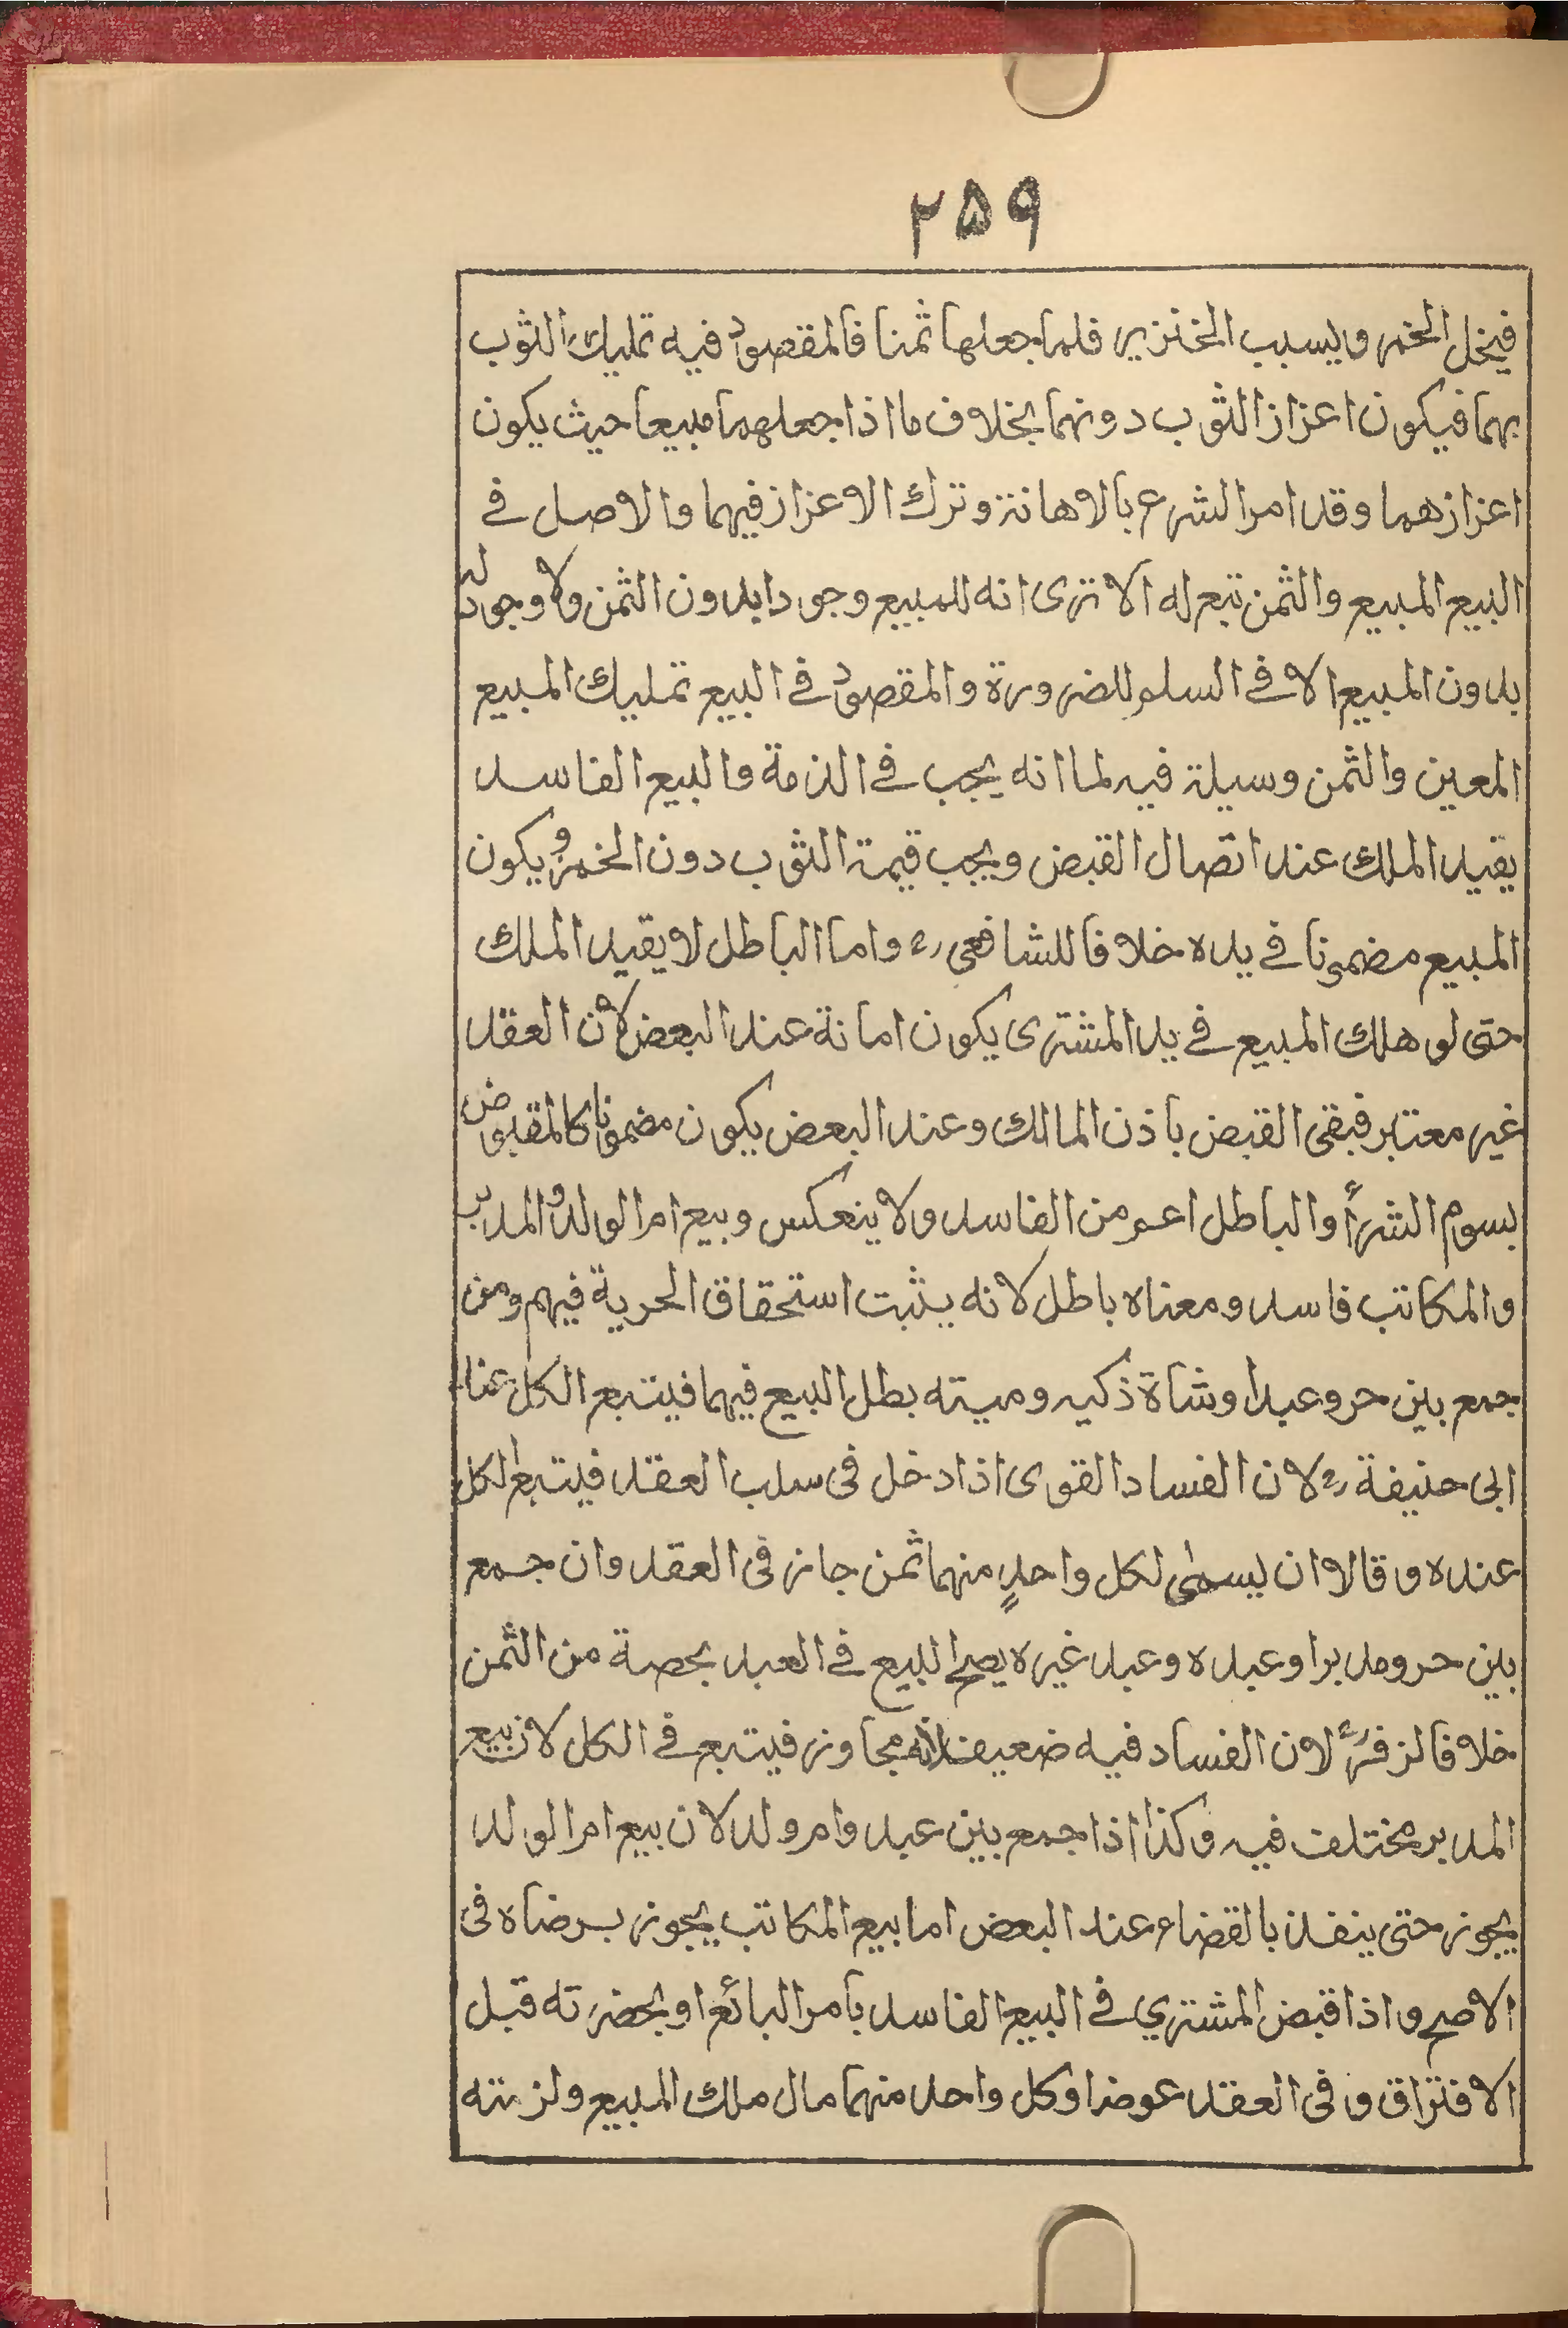 ۲۵۹
فيخل الخمر ويسبب الخنزير فلما جعلها ثمنا فالمقصود فيه تمليك الثوب
بهما فيكون اعزاز الثوب دونهما بخلاف ما اذا جعلهما مبيعا حيث يكون
اعزازهما وقد امر الشرع بالاهانة وترك الاعزاز فيهما والاصل في
البيع المبيع والثمن تبع له الا ترى انه للمبيع وجودا بدون الثمن ولا وجود له
بدون المبيع الا في السلم للضرورة والمقصود في البيع تمليك المبيع
المعين والثمن وسيلة فيه لما انه يجب في الذمة والبيع الفاسد
يفيد الملك عند اتصال القبض ويجب قيمة الثوب دون الخمر ويكون
المبيع مضمونا في يده خلافا للشافعي رح واما الباطل لا يفيد الملك
حتى لو هلك المبيع في يد المشترى يكون امانة عند البعض لان العقد
غير معتبر فبقى القبض باذن المالك وعند البعض يكون مضمونا كالمقبوض
بسوم الشراء والباطل اعم من الفاسد ولا ينعكس وبيع ام الولد والمدبر
والمكاتب فاسد ومعناه باطل لانه يثبت استحقاق الحرية فيهم ومن
جمع بين حر وعبد اوشاة ذكيه وميته بطل البيع فيهما فيتبع الكل عند
ابى حنيفة رح لان الفساد القوى اذا دخل فى سلب العقد فيتبع الكل
عنده وقالا وان يسمى لكل واحدٍ منهما ثمن جاز فى العقد وان جمع
بين حر ومدبر او عبده وعبد غيره يصح البيع في العبد بحصة من الثمن
خلافا لزفر رح لان الفساد فيه ضعيف لانه مجاوز فيتبع في الكل لان بيع
المدبر مختلف فيه وكذا اذا جمع بين عبد وام ولد لان بيع ام الولد
يجوز حتى ينفذ بالقضاء عند البعض اما بيع المكاتب يجوز برضاه فى
الاصح واذا قبض المشتري في البيع الفاسد بأمر البائع او بحضرته قبل
الافتراق وفى العقد عوضا وكل واحد منهما مال ملك المبيع ولزمته